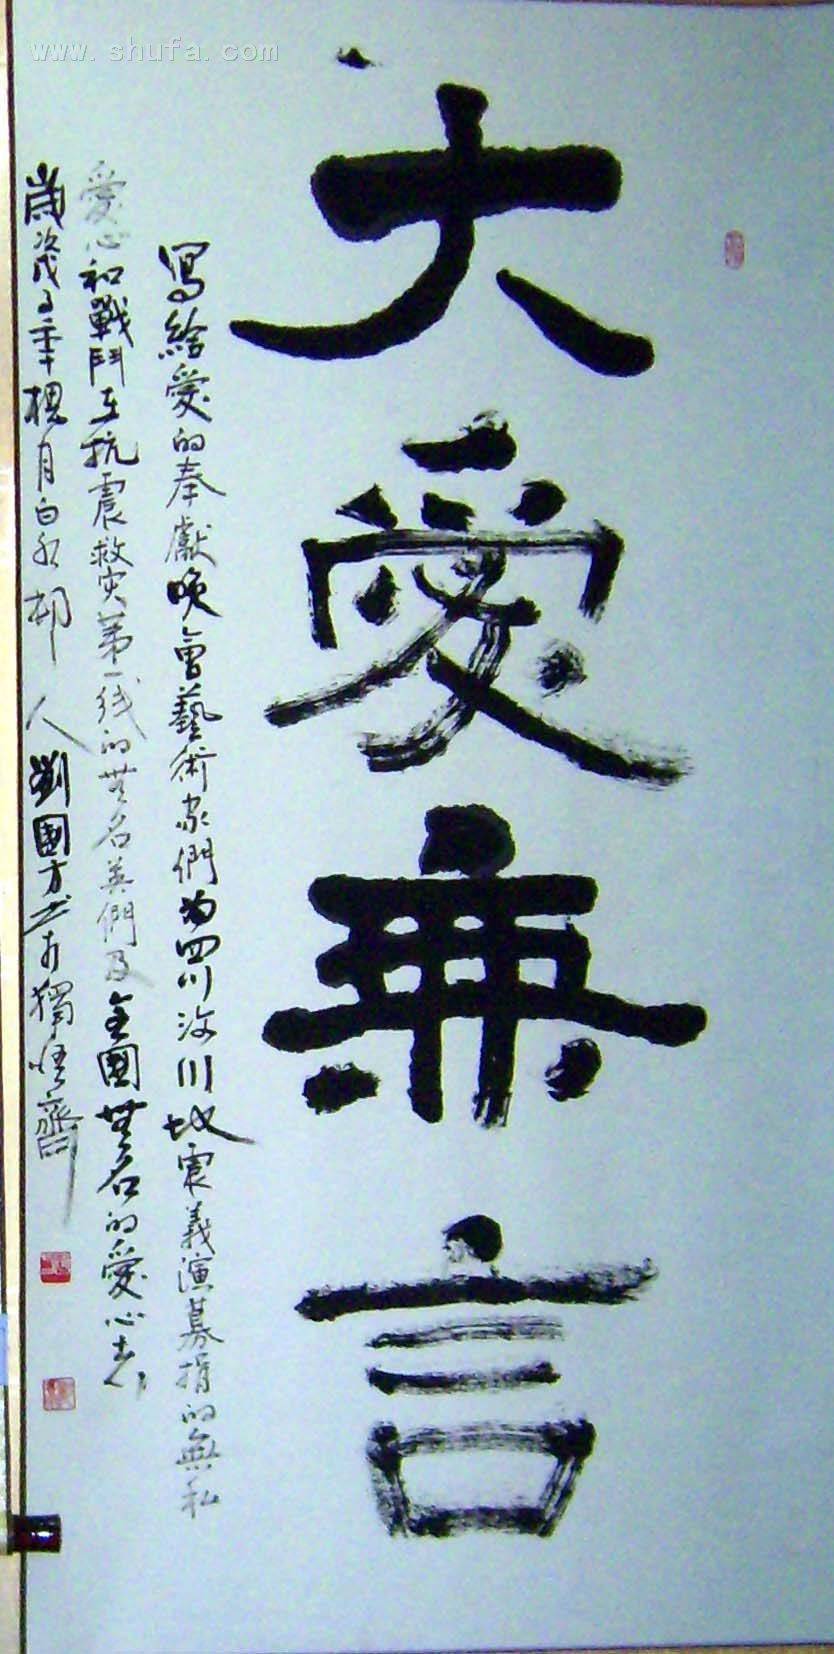 www.shufa.com
大愛無言
寫給愛的奉獻晚會藝術家們为四川汶川地震義演募捐的無私
愛心和戰鬥在抗震救灾第一线的無名英们及全國無名的愛心者
歲次戊子年槐月白水村人劉國方书於獨悟齋